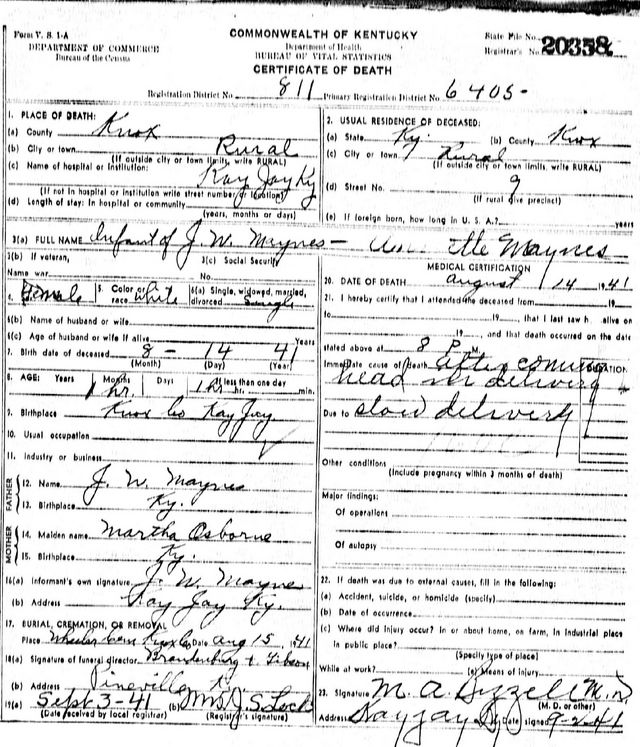 Form V. S. 1-A
DEPARTMENT OF COMMERCE
Bureau of the Census
COMMONWEALTH OF KENTUCKY
Department of Health
BUREAU OF VITAL STATISTICS
CERTIFICATE OF DEATH
State File No.
Registrar's No. 20358
Registration District No. 811 Primary Registration District No. 6405-
1. PLACE OF DEATH:
(a) County Knox
(b) City or town Rural
(If outside city or town limits, write RURAL)
(c) Name of hospital or institution:
Kay Jay Ky
(If not in hospital or institution write street number or location)
(d) Length of stay: In hospital or community
(years, months or days)
2. USUAL RESIDENCE OF DECEASED:
(a) State Ky. (b) County Knox
(c) City or town Rural
(If outside city or town limits, write RURAL)
(d) Street No. 9
(If rural give precinct)
(e) If foreign born, how long in U. S. A.? years
3(a) FULL NAME Infant of J. W. Maynes - Maynes
3(b) If veteran,
Name war
3(c) Social Security
No.
4. Female 5. Color or race White 6(a) Single, widowed, married, divorced Single
6(b) Name of husband or wife
6(c) Age of husband or wife if alive Years
7. Birth date of deceased 8 - 14 41
(Month) (Day) (Year)
8. AGE: Years Months Days If less than one day
1 hr 1 hr. hr. min.
9. Birthplace Knox Co Kay Jay
10. Usual occupation
11. Industry or business
FATHER
12. Name J. W. Maynes
13. Birthplace Ky.
MOTHER
14. Maiden name Martha Osborne
15. Birthplace Ky.
16(a) Informant's own signature J. W. Maynes
(b) Address Kay Jay Ky.
17. BURIAL, CREMATION, OR REMOVAL
Place Wheeler Cem Knox Co Date Aug 15, 41
18(a) Signature of funeral director Brandenburg & Gibson
(b) Address Pineville Ky.
19(a) Sept 3-41 (b) Mrs J. S. Lock
(Date received by local registrar) (Registrar's signature)
MEDICAL CERTIFICATION
20. DATE OF DEATH August 14 1941
21. I hereby certify that I attended the deceased from 19
to 19, that I last saw h alive on
19, and that death occurred on the date
stated above at 8 P. M.
Immediate cause of death After coming DURATION
head in delivery
Due to slow delivery
Other conditions
(Include pregnancy within 3 months of death)
Major findings:
Of operations
Of autopsy
22. If death was due to external causes, fill in the following:
(a) Accident, suicide, or homicide (specify)
(b) Date of occurrence
(c) Where did injury occur? In or about home, on farm, in industrial place
in public place?
(Specify type of place)
While at work? (e) Means of injury
23. Signature M. A. M. D.
(M. D. or other)
Address Kayjay Ky Date signed 9-2-41